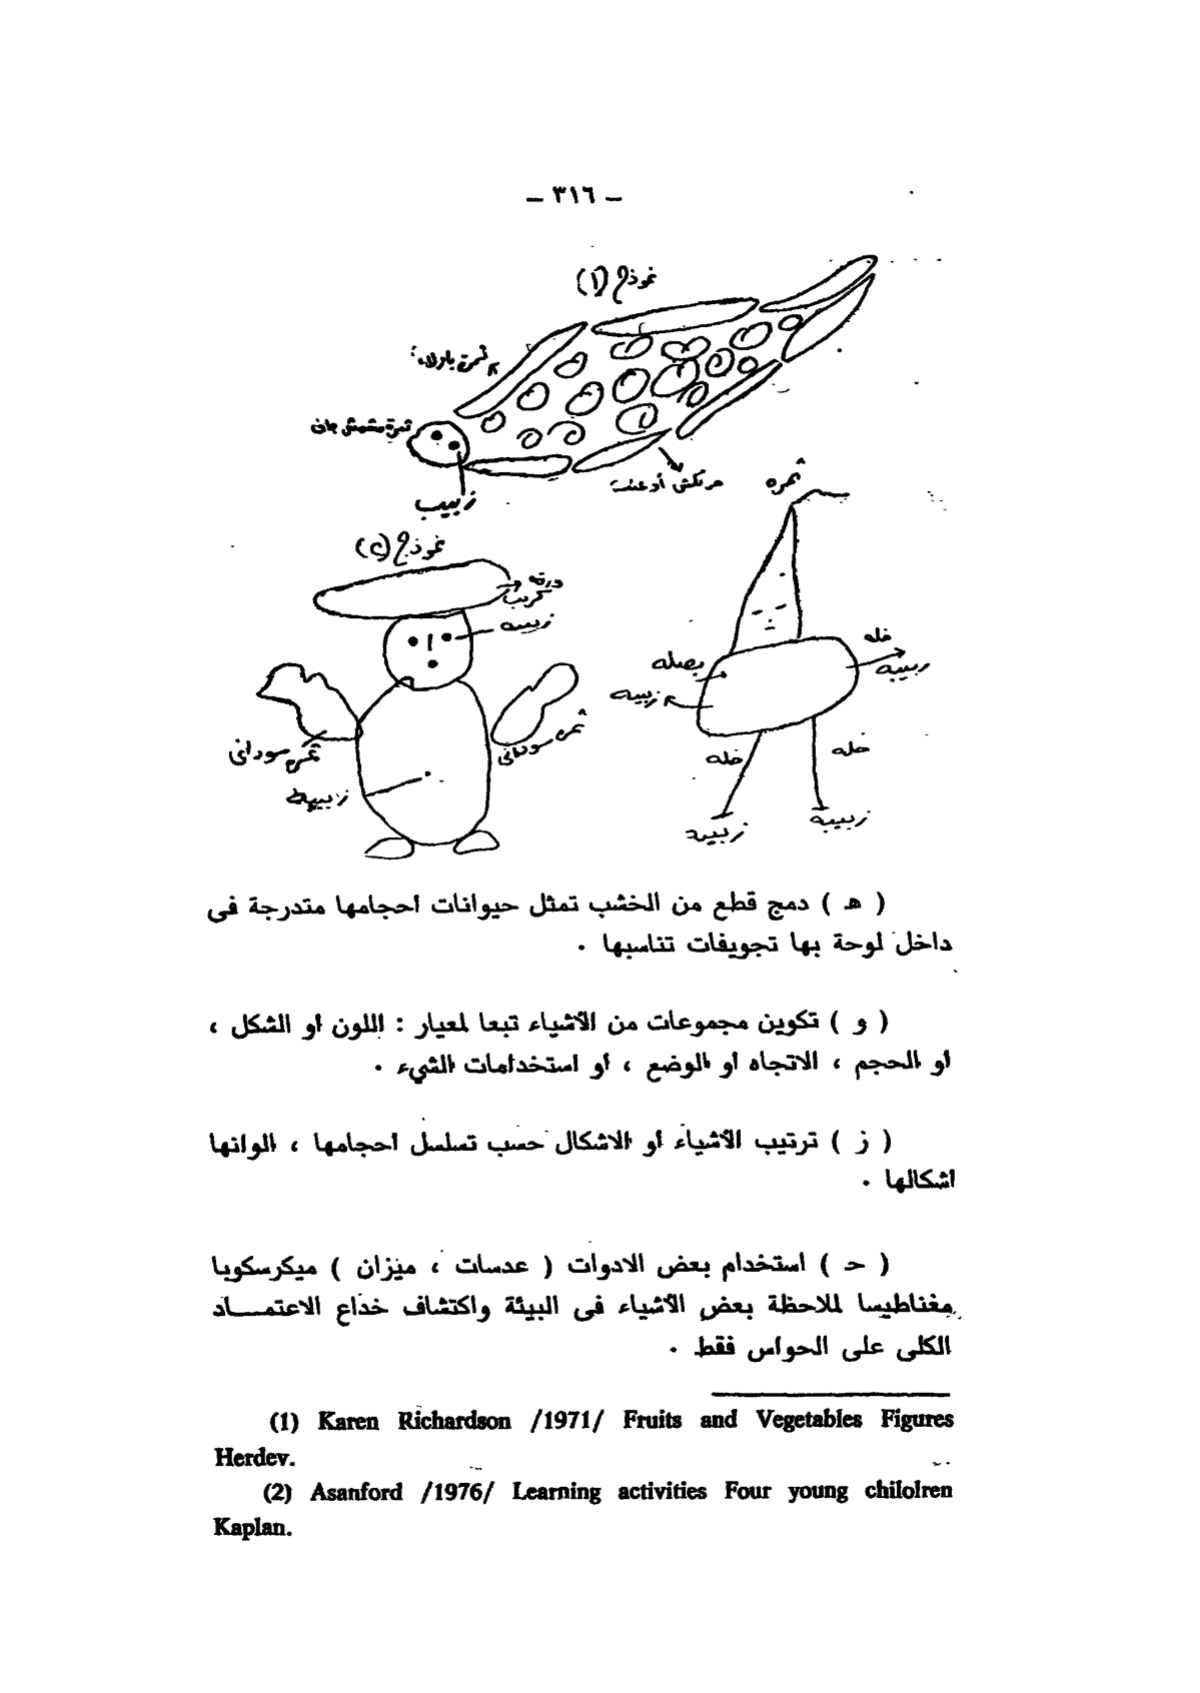 — ٣١٦ —
نموذج (١)
ثمرة مشمش جاف
زبيب
ثمره
نموذج (٢)
ورقة
كرنب
زبيبه
خله
بصله
زبيبه
زبيبه
ثمره سودانى
ثمره سودانى
خله
خله
زبيبه
زبيبه
( هـ ) دمج قطع من الخشب تمثل حيوانات احجامها متدرجة فى
داخل لوحة بها تجويفات تناسبها ٠
( و ) تكوين مجموعات من الأشياء تبعا لمعيار : اللون او الشكل ،
او الحجم ، الاتجاه او الوضع ، او استخدامات الشيء ٠
( ز ) ترتيب الأشياء او الاشكال حسب تسلسل احجامها ، الوانها
اشكالها ٠
( حـ ) استخدام بعض الادوات ( عدسات ، ميزان ) ميكرسكوبا
مغناطيسا لملاحظة بعض الأشياء فى البيئة واكتشاف خداع الاعتمـــاد
الكلى على الحواس فقط ٠
(1) Karen Richardson /1971/ Fruits and Vegetables Figures
Herdev.
(2) Asanford /1976/ Learning activities Four young chilolren
Kaplan.